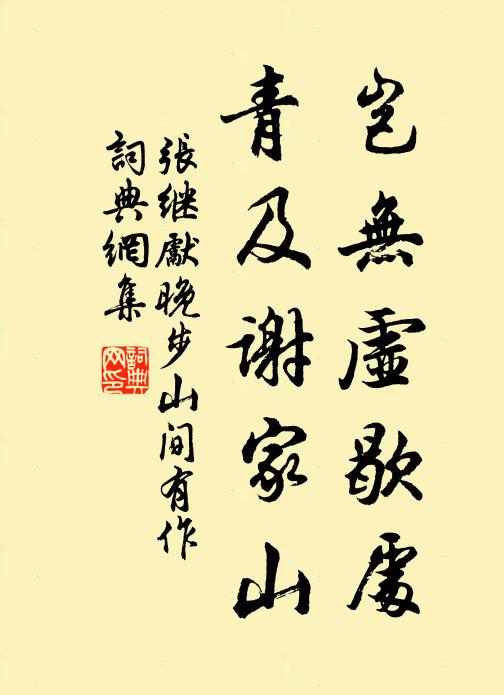 豈無虛歇處
青及謝家山
張继獻晚步山间有作
詞典網集
詞典
网印